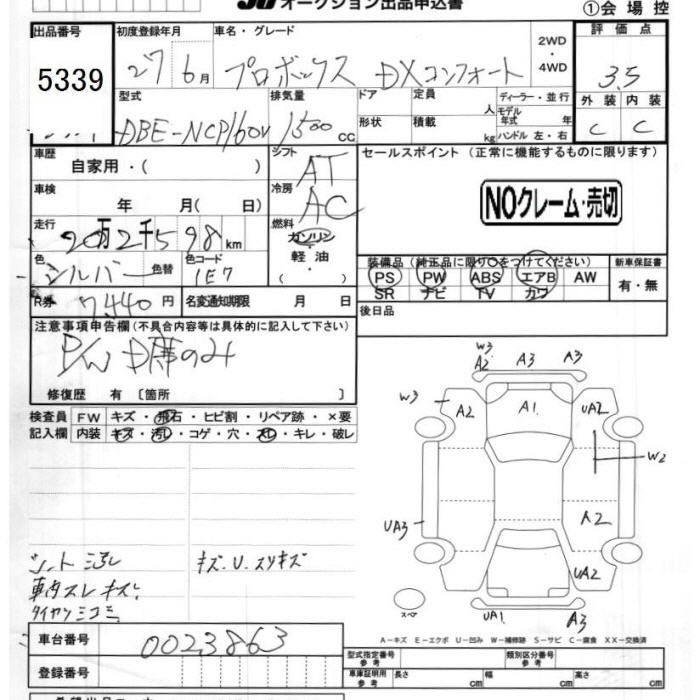 オークション出品申込書
①会場控
出品番号 初度登録年月 車名・グレード 2WD・4WD 評価点
5339 27 6月 プロボックス DXコンフォート 3.5
型式 排気量 ドア 定員 人 ディーラー・並行 外装 内装
DBE-NCP160V 1500cc 形状 積載 kg モデル年式 年 ハンドル 左・右 C C
車歴 自家用・( ) シフト AT セールスポイント (正常に機能するものに限ります)
車検 年 月( 日) 冷房 AC NOクレーム・売切
走行 20万2千598km 燃料 ガソリン・軽油・
色 シルバー 色替 色コード 1E7 装備品 (純正品に限り○をつけてください) 新車保証書
PS PW ABS エアB AW 有・無
SR ナビ TV カワ
R券 7,440円 名変通知期限 月 日 後日品
注意事項申告欄 (不具合内容等は具体的に記入して下さい)
P/W D席のみ
修復歴 有 〔箇所 〕
検査員 FW キズ・飛石・ヒビ割・リペア跡・×要
記入欄 内装 キズ・汚れ・コゲ・穴・スレ・キレ・破レ
W3 A2 A3 A3
W3 A2 A1. UA2
W2
UA3 A2
UA2
スペア UA1. A3
シート汚れ キズ.U.スリキズ
車内スレキズ
A-キズ E-エクボ U-凹み W-補修跡 S-サビ C-腐食 XX-交換済
車台番号 0023863
登録番号
型式指定番号 参考 類別区分番号 参考
車庫証明用 参考 長さ cm 幅 cm 高さ cm